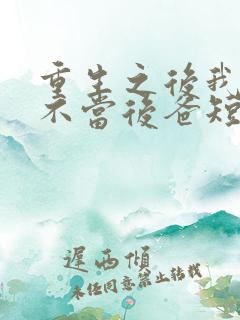 重生之後我
不當後爸短
遲西傾
未任同意禁止轉載